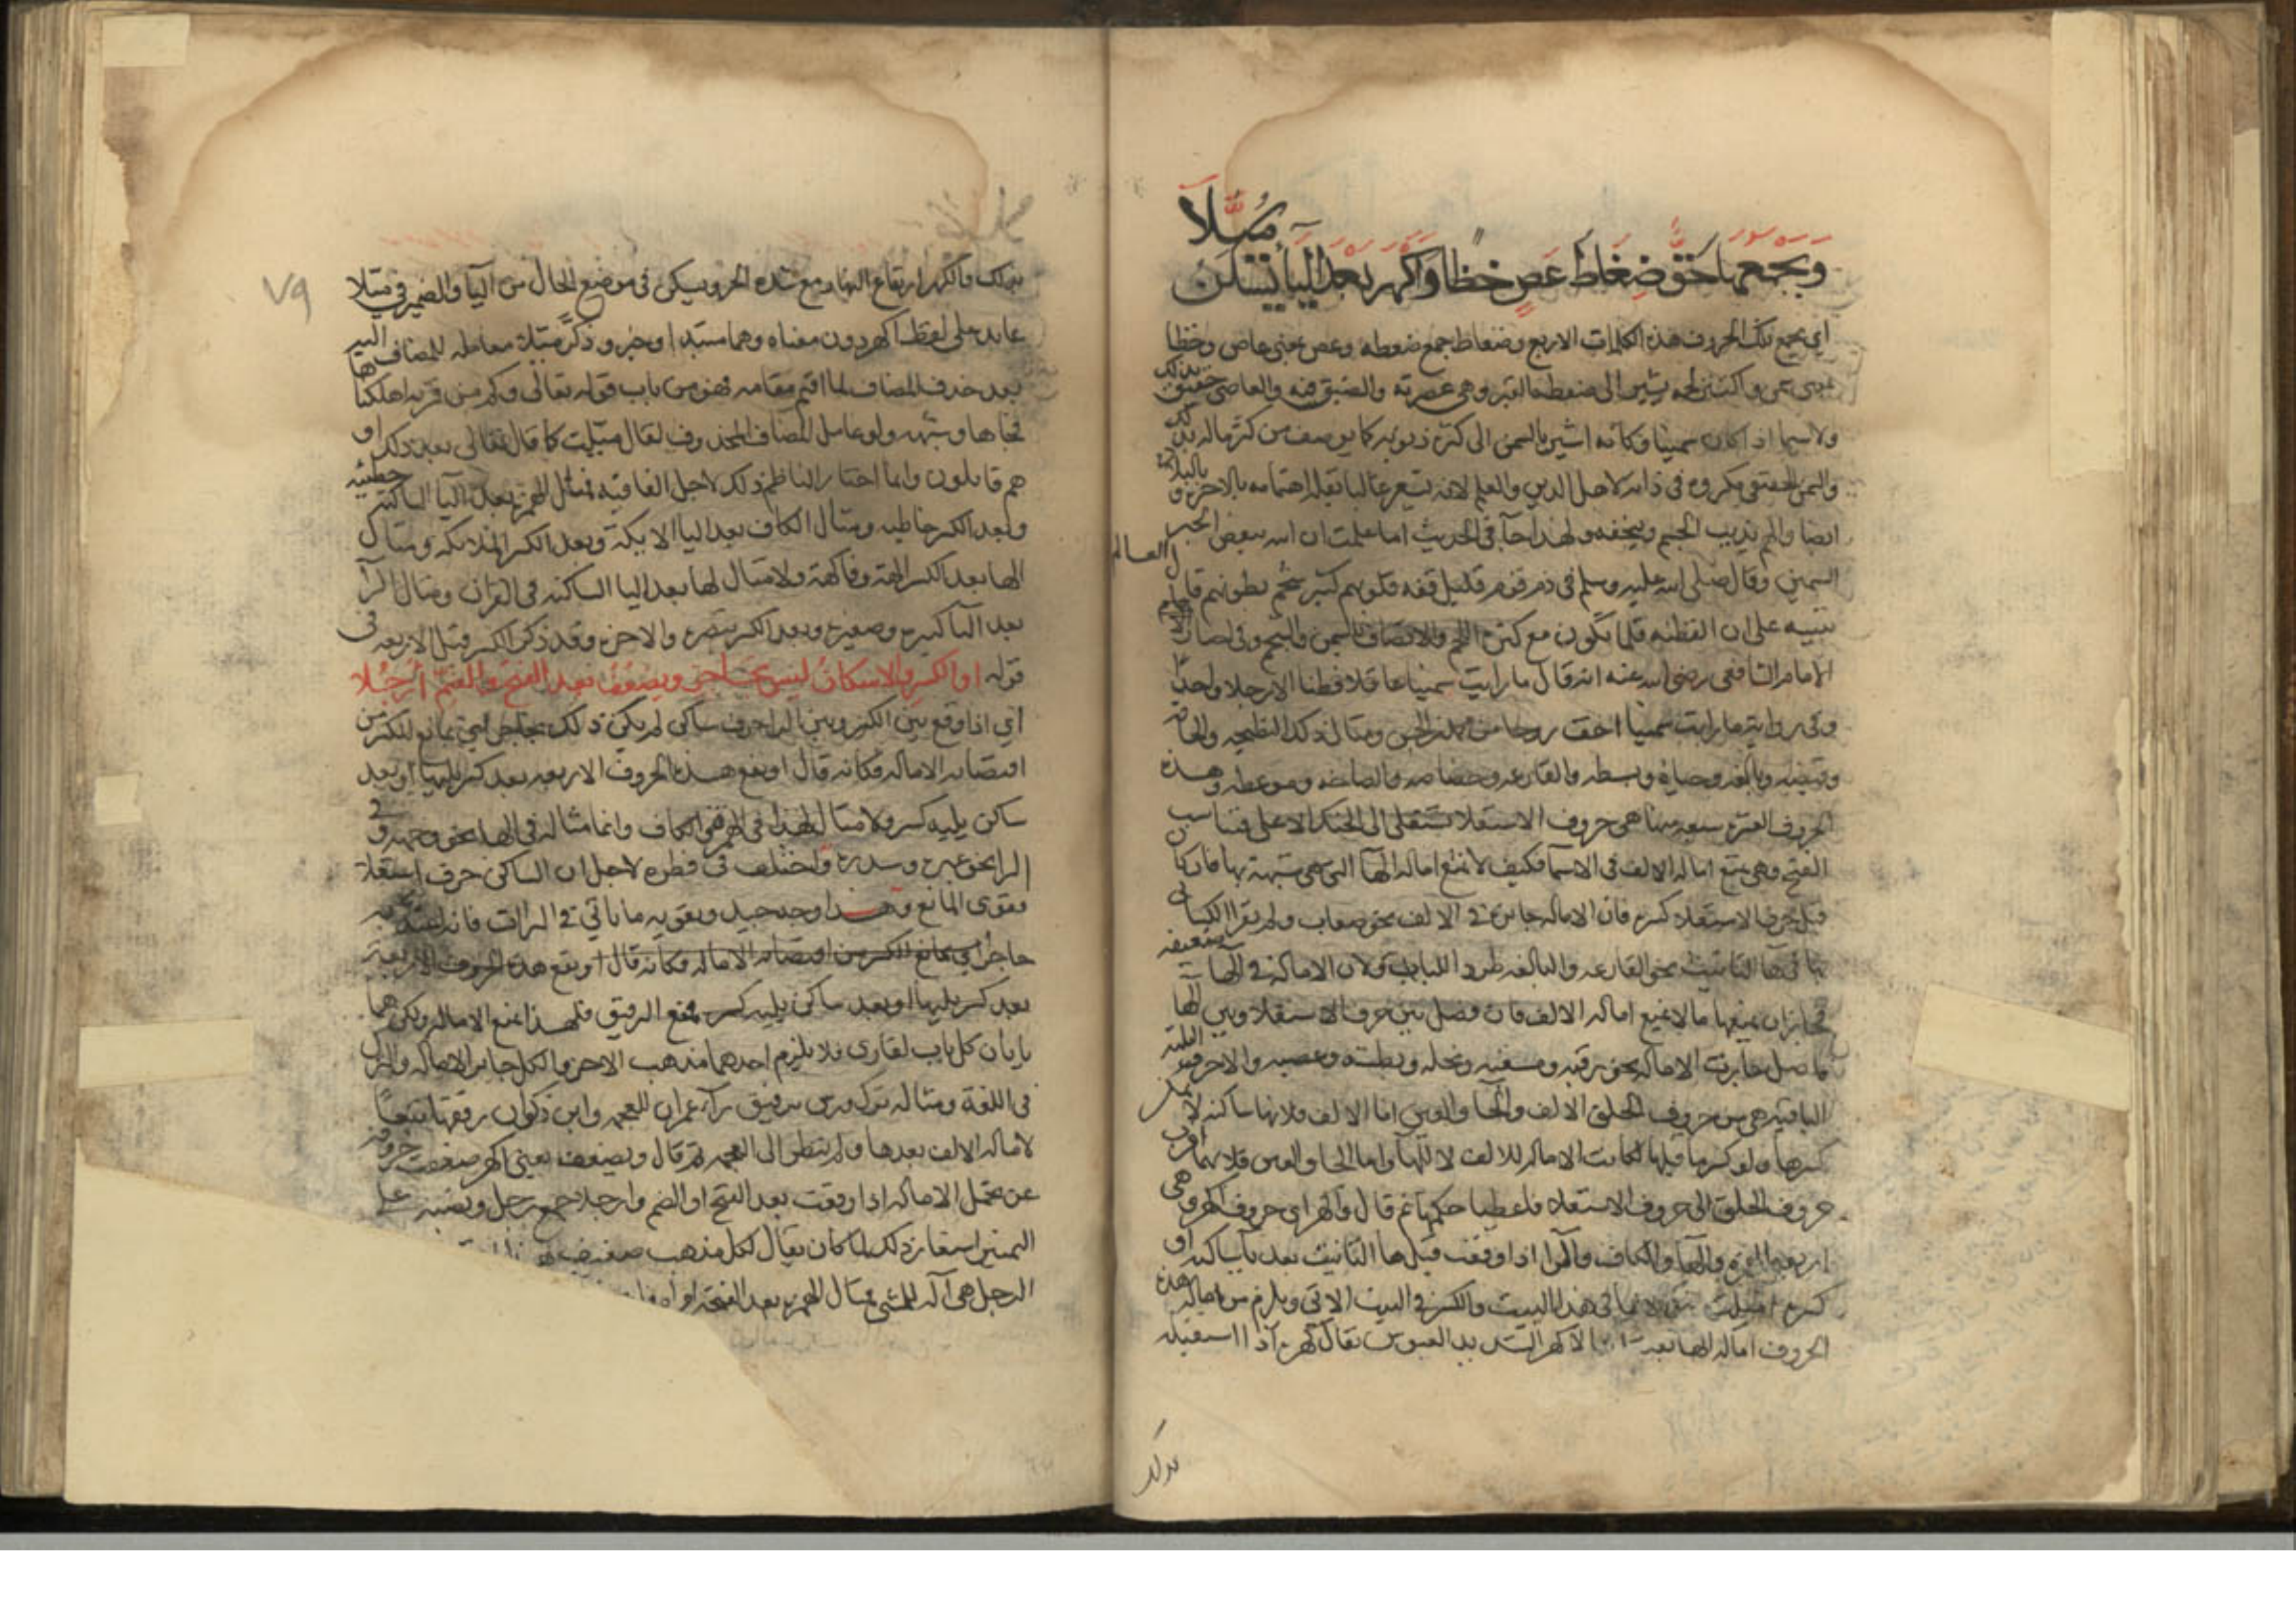 ويجمعها حق ضغاط عص خظا واكهر بعد الياء يسكن ميلا
اي يجمع تلك الحروف هذه الكلمات الاربع وضغاط جمع ضغطة وعص بمعنى عاص وخظا
بمعنى سمن واكتنز لحمه يشير الى ضغطة القبر وهي عصرته والضيق فيه والعاصي حقيق بذلك
ولاسيما اذا كان سمينا وكانه اشير بالسمن الى كثرة ذنوبه كما يوصف من كثر ماله بذلك
والسمن الحقيقي مكروه في ذاته لاهل الدين والعلم لانه يشعر غالبا بقلة اهتمامه بالاخرة و
ايضا والهم يذيب الجسم وينحفه ولهذا جا في الحديث اما علمت ان الله يبغض الحبر
العالم
السمين وقال صلى الله عليه وسلم في ذم قوم قليل فقه قلوبهم كثير شحم بطونهم
تنبيه على ان الفطنة قلما تكون مع كثرة اللحم والاتصاف بالسمن والشحم وفي اخبار
الامام الشافعي رضي الله عنه انه قال ما رايت سمينا عاقلا فطنا الا رجلا واحدا
وفي رواية ما رايت سمينا اخف روحا من محمد بن الحسن ومثال ذلك النطيحة والحاقة
وقبضة وبالغة وحياة وبسطة والقارعة وخصاصة والصاخة وموعظة وهذه
الحروف العشرة سبعة منها هي حروف الاستعلا تستعلي الى الحنك الاعلى فتناسب
الفتح وهي تمنع امالة الالف في الاسما فكيف لا تمنع امالة الها التي هي مشبهة بها فان كان
قبل حرف الاستعلا كسرة فان الامالة جائزة في الالف نحو صعاب ولم يقرا الكسائي
بها في ها التانيث نحو القارعة والبالغة طردا للباب ولان الامالة في الها ضعيفة
فجاز ان يمنعها ما لا يمنع امالة الالف فان فصل بين حرف الاستعلا وبين الها
فاصل جازت الامالة نحو رقبة ومسغبة ونخلة وبطشة وعصبة والاحرف الثلثة
الباقية هي من حروف الحلق الالف والحا والعين اما الالف فلانها ساكنة لا يمكن
كسرها ولو كسر ما قبلها لكانت الامالة للالف لا للها واما الحا والعين فلانهما اقرب
حروف الحلق الى حروف الاستعلا فاعطيا حكمها ثم قال واكهر اي حروف اكهر وهي
اربعة الهمزة والها والكاف والرا اذا وقعت قبل ها التانيث بعد يا ساكنة او
كسرة اميلت في هذا البيت والكسر في البيت الاتي ويلزم من امالة هذه
الحروف امالة الها بعد الاكهر الشديد العبوس يقال كهره اذا استقبله
بذلك
٧٩
بذلك والكهر ارتفاع النهار مع شدة الحر ويسكن في موضع الحال من اليا والضمير في ميلا
عايد على لفظ اكهر دون معناه وهما مبتدا وخبر وذكر ميلا معاملة للمضاف اليه
بعد حذف المضاف لما اقيم مقامه فهو من باب قوله تعالى وكم من قرية اهلكناها
فجاءها وشبهه ولو عامل المضاف المحذوف لقال ميلت كما قال تعالى بعد ذلك او
هم قائلون وانما اختار الناظم ذلك لاجل القافية فمثال الهمزة بعد اليا الساكنة خطيئة
وبعد الكسر خاطية ومثال الكاف بعد اليا الايكة وبعد الكسر الملائكة ومثال
الها بعد الكسر الهة وفاكهة ولا مثال لها بعد اليا الساكنة في القران ومثال الرا
بعد اليا كبيرة وصغيرة وبعد الكسر تبصرة والاخرة وقد ذكر الكسر قبل الاربعة في
قوله او الكسر والاسكان ليس بحاجز ويضعف بعد الفتح والضم ارجلا
اي اذا وقع بين الكسر وبين الها حرف ساكن لم يكن ذلك بحاجز اي بمانع للكسر من
اقتضائه الامالة فكانه قال او يقع هذه الحروف الاربعة بعد كسر يليها او بعد
ساكن يليه كسر ولا مثال لهذا في الهمز وفي الكاف وانما مثاله في الها نحو وجهة وفي
الرا نحو عبرة وسدرة واختلف في فطرة لاجل ان الساكن حرف استعلا
فقوى المانع وهذا وجه جيد ويقويه ما ياتي في الرات فانه اعتد به
حاجزا اي بمانع للكسر من اقتضائه الامالة فكانه قال او يقع هذه الحروف الاربعة
بعد كسر يليها او بعد ساكن يليه كسر منع الترقيق فلهذا منع الامالة ولكن هما
بابان كل باب لقاري فلا يلزم احدهما مذهب الاخر والكل جائز الامالة والترك
في اللغة ومثاله ترك ورش ترقيق را عمران للعجمة وابن ذكوان رققها تبعا
لامالة الالف بعدها ولم ينظر الى العجمة ثم قال ويضعف يعني اكهر ضعفت حروفه
عن تحمل الامالة اذا وقعت بعد الفتح او الضم وارجلا جمع رجل ونصبه على
التمييز استعار ذلك لما كان يقال لكل مذهب ضعيف
الرجل هي آلة للمشي فمثال الهمزة بعد الفتحة